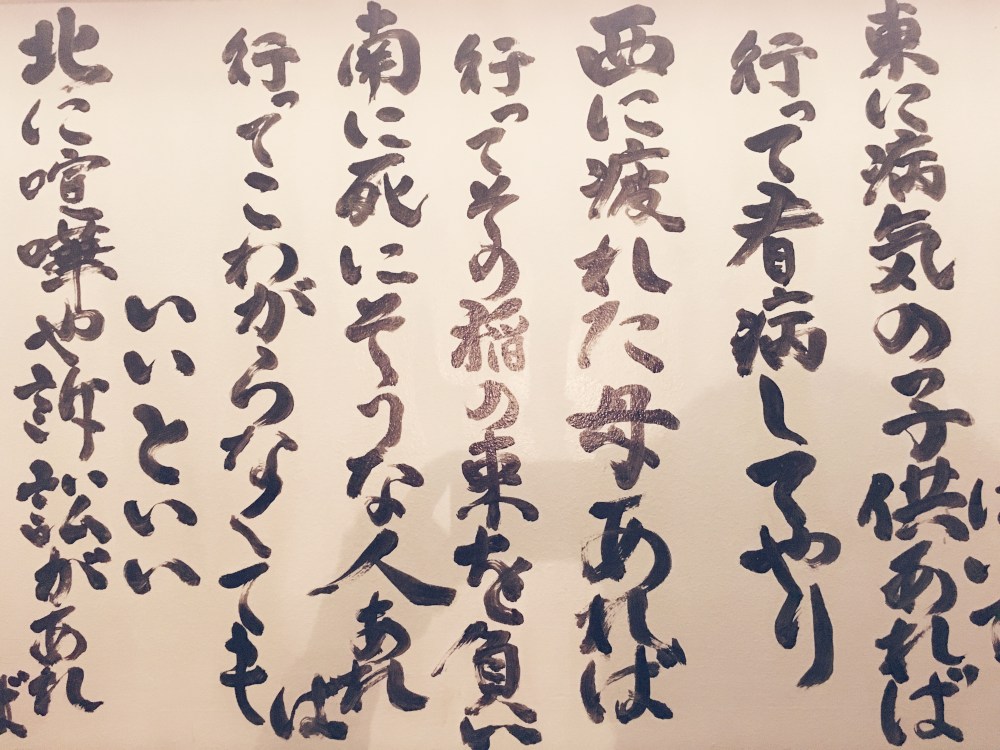 東に病気の子供あれば
行って看病してやり
西に疲れた母あれば
行ってその稲の束を負い
南に死にそうな人あれば
行ってこわがらなくても
いいといい
北に喧嘩や訴訟があれば